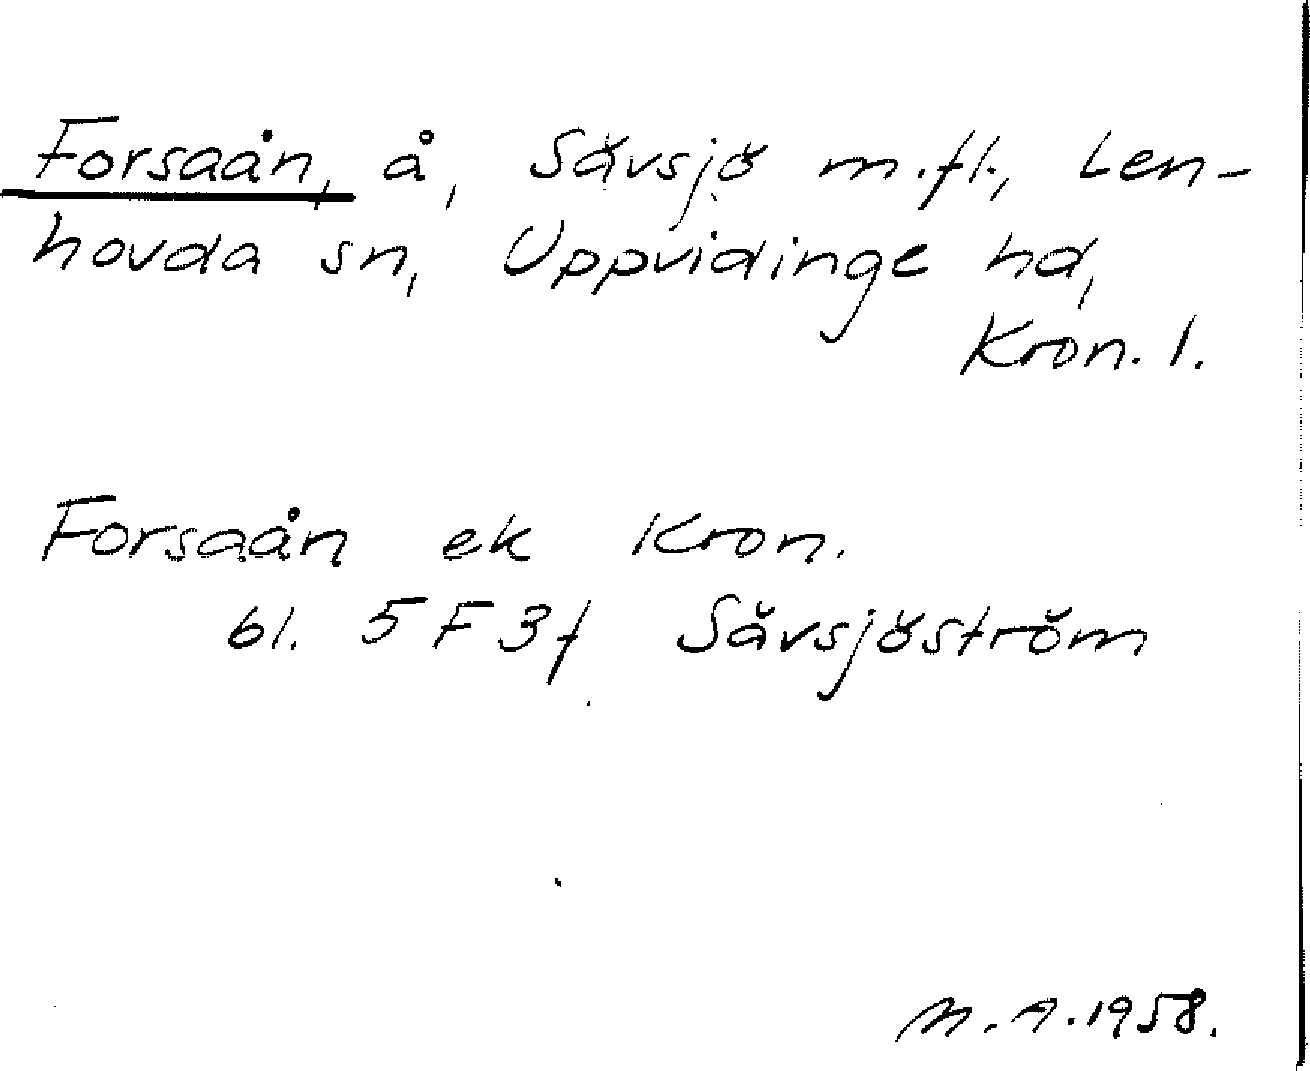 Forsaån, å, Sävsjö m.fl., Len-
hovda sn, Uppvidinge hd,
Kron. l.
Forsaån ek Kron.
bl. 5 F 3f Sävsjöström
M.A. 1958.